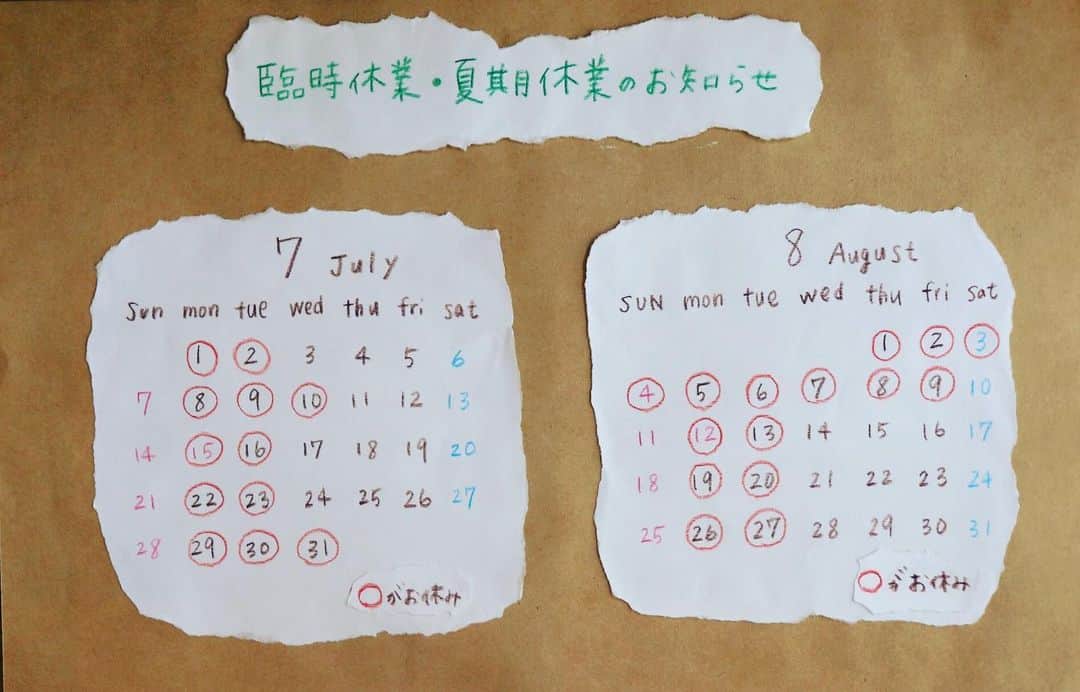 臨時休業・夏期休業のお知らせ
7 July
Sun mon tue wed thu fri sat
1 2 3 4 5 6
7 8 9 10 11 12 13
14 15 16 17 18 19 20
21 22 23 24 25 26 27
28 29 30 31
○がお休み
8 August
SUN mon tue wed thu fri sat
1 2 3
4 5 6 7 8 9 10
11 12 13 14 15 16 17
18 19 20 21 22 23 24
25 26 27 28 29 30 31
○がお休み